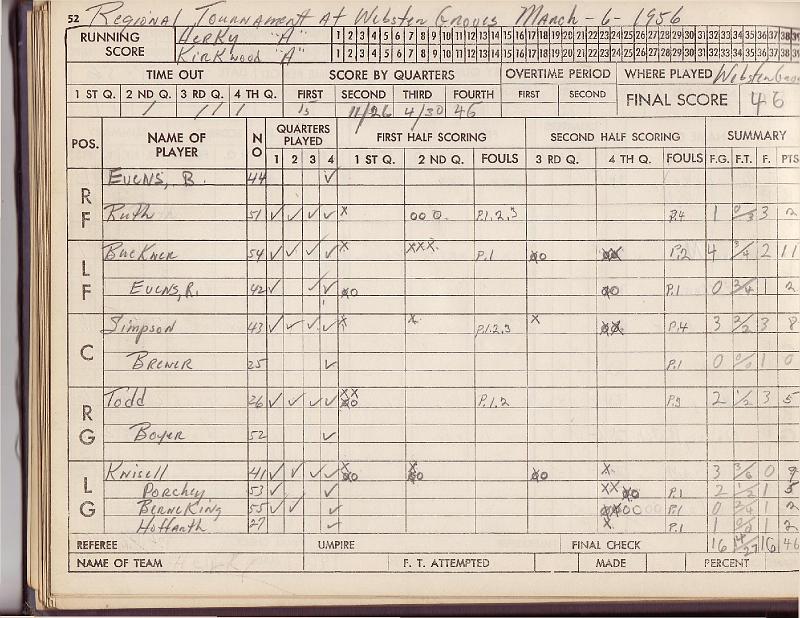 52 Regional Tournament At Webster Groves March - 6 - 1956
RUNNING SCORE
Herky "A" 1 2 3 4 5 6 7 8 9 10 11 12 13 14 15 16 17 18 19 20 21 22 23 24 25 26 27 28 29 30 31 32 33 34 35 36 37 38 39
Kirkwood "A" 1 2 3 4 5 6 7 8 9 10 11 12 13 14 15 16 17 18 19 20 21 22 23 24 25 26 27 28 29 30 31 32 33 34 35 36 37 38 39
TIME OUT SCORE BY QUARTERS OVERTIME PERIOD WHERE PLAYED Webster
1 ST Q. 2 ND Q. 3 RD Q. 4 TH Q. FIRST SECOND THIRD FOURTH FIRST SECOND FINAL SCORE 46
/ / / / 15 11/26 4/30 46
POS. NAME OF PLAYER NO QUARTERS PLAYED FIRST HALF SCORING SECOND HALF SCORING SUMMARY
1 2 3 4 1 ST Q. 2 ND Q. FOULS 3 RD Q. 4 TH Q. FOULS F.G. F.T. F. PTS
RF Evens, B. 44 ✓
Ruth 51 ✓ ✓ ✓ ✓ x 000 P.1,2,3 P.4 1 0/3 3 2
LF Buckner 54 ✓ ✓ ✓ ✓ x xxx P.1 P.2 4 3/4 2 11
Evens, R. 42 ✓ ✓ ✓ P.1 0 2/4 1 2
C Simpson 43 ✓ ✓ ✓ ✓ x x P.1.2.3 x P.4 3 2/2 3 8
Brewer 25 ✓ P.1 0 0/0 1 0
RG Todd 26 ✓ ✓ ✓ ✓ xx P.1.2 P.3 2 1/2 3 5
Boyer 52 ✓
LG Knisell 41 ✓ ✓ ✓ ✓ x x x 3 3/6 0 9
Porchey 53 ✓ ✓ xx P.1 2 1/2 1 5
Berne King 55 ✓ ✓ ✓ P.1 0 2/4 1 2
Hoffarth 27 ✓ x P.1 1 0/0 1 2
REFEREE UMPIRE FINAL CHECK 16 14/27 16 46
NAME OF TEAM F. T. ATTEMPTED MADE PERCENT